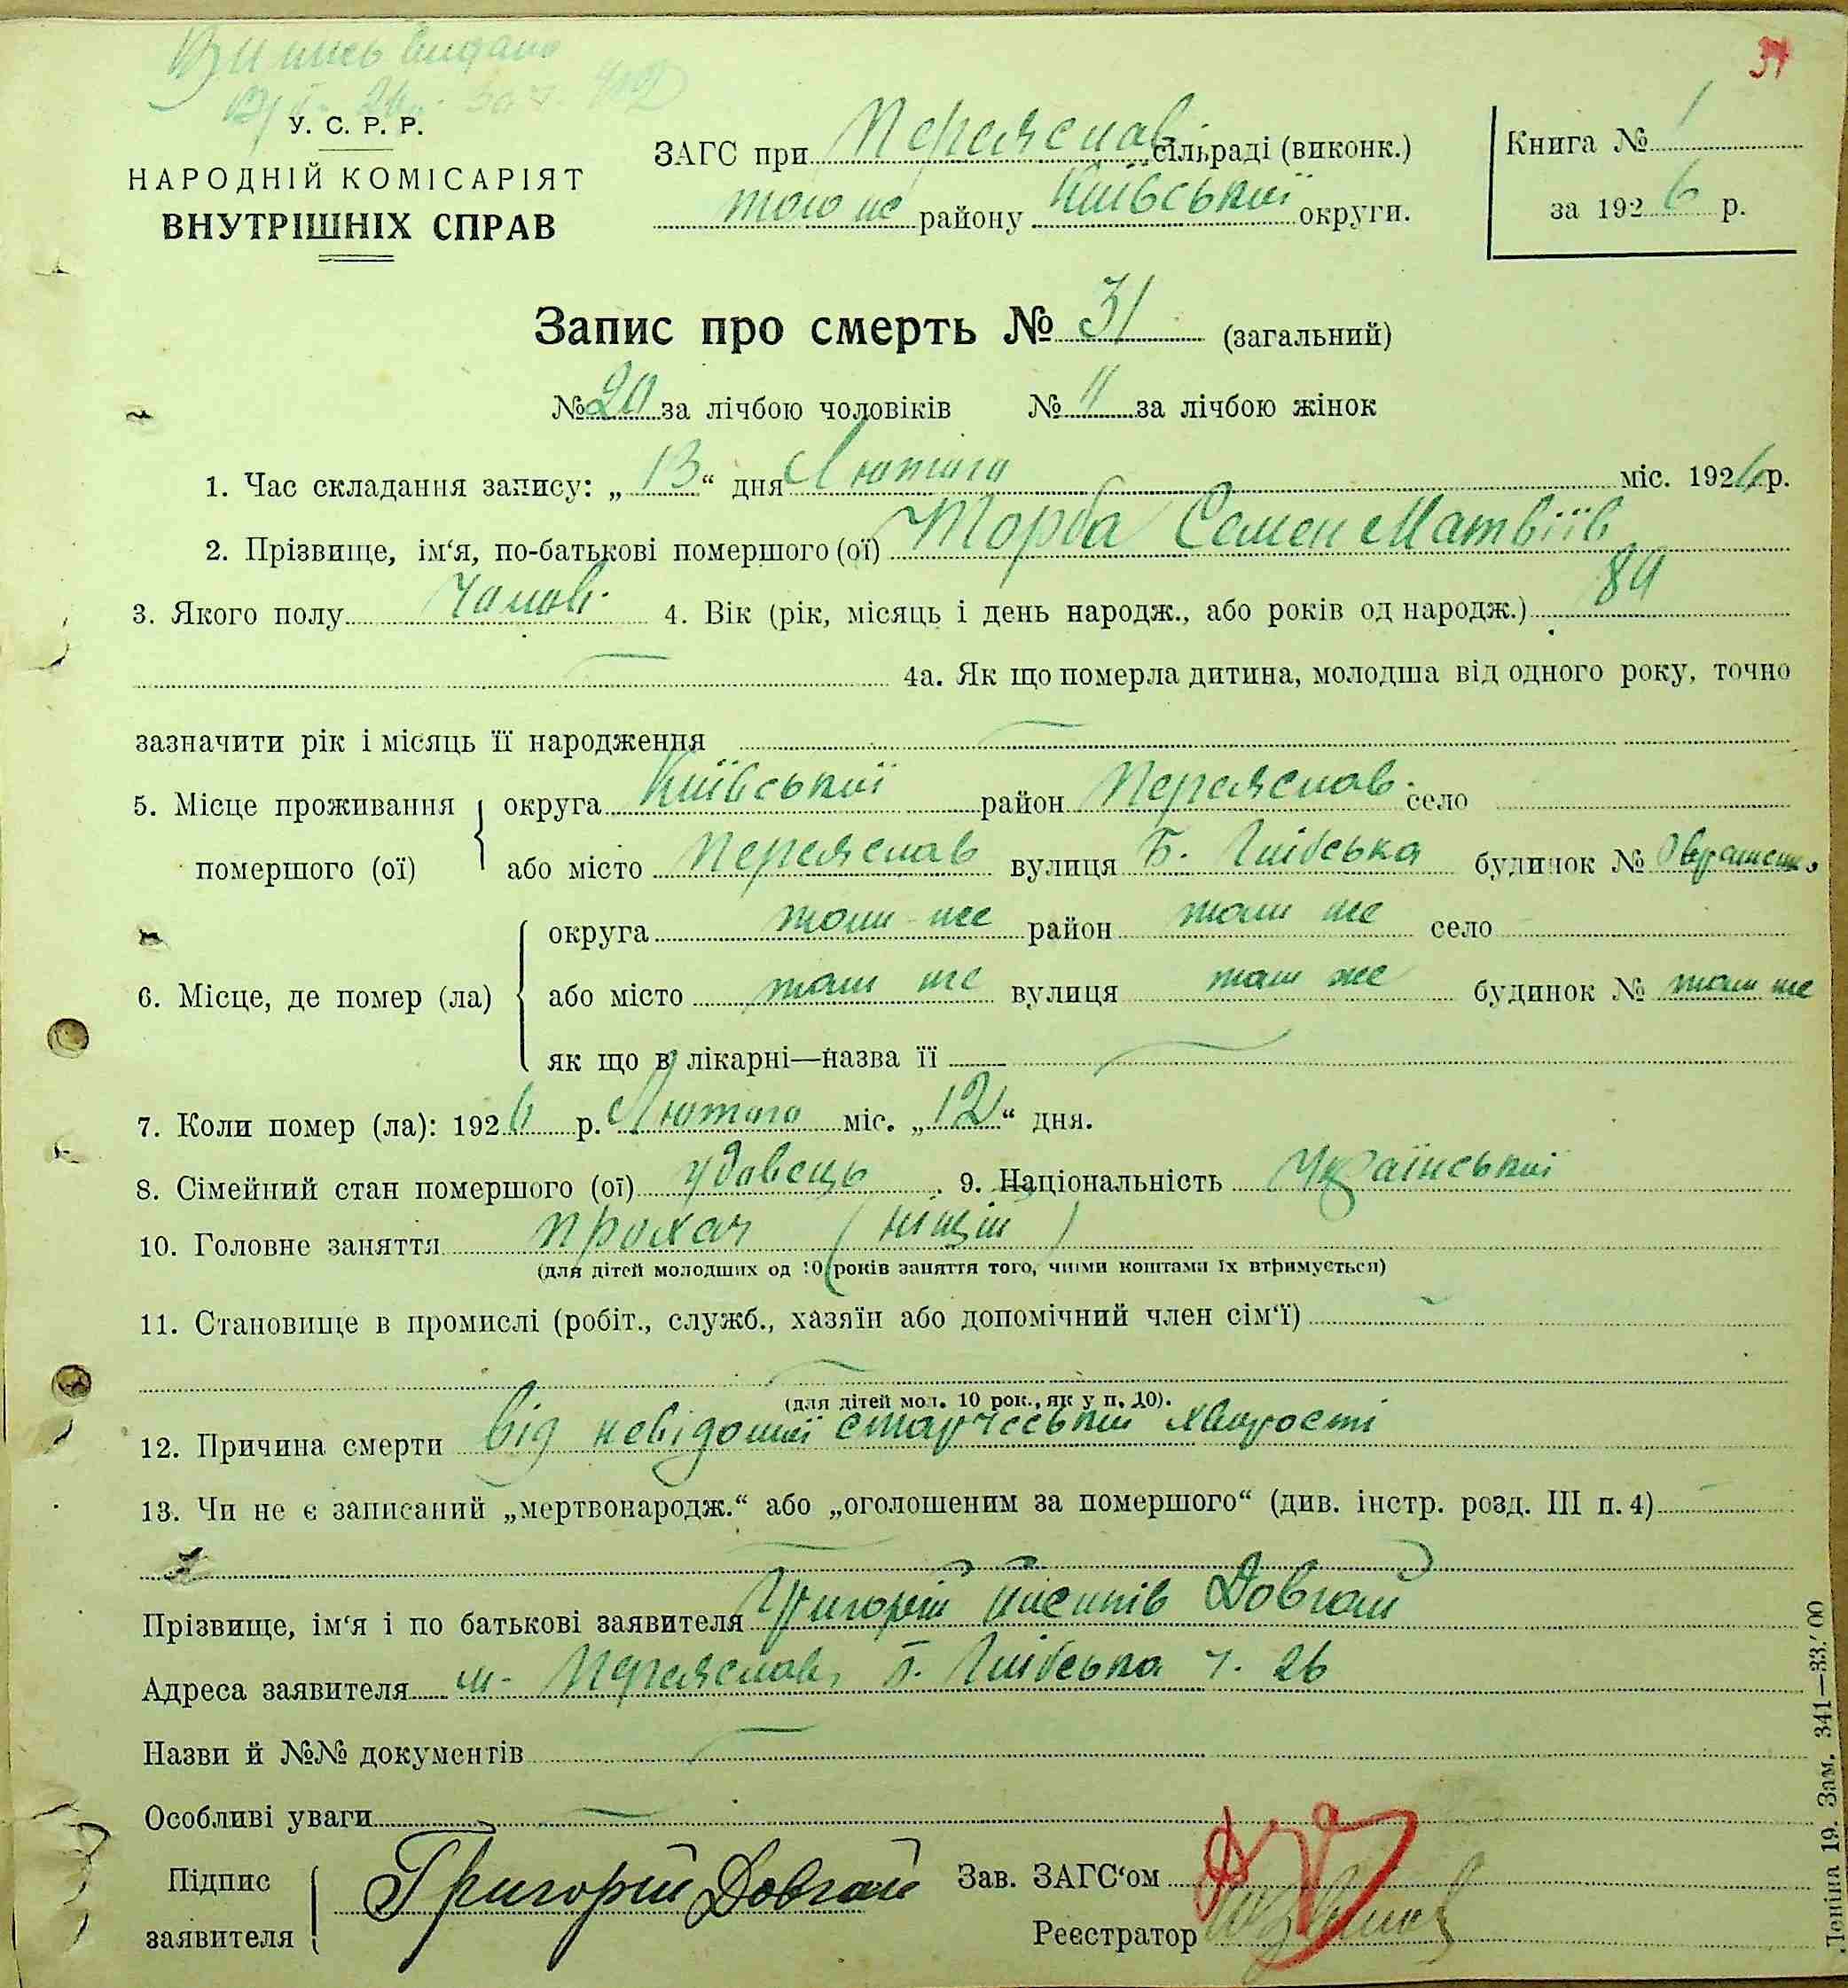 Витись видано
34
У. С. Р. Р.
НАРОДНІЙ КОМІСАРІЯТ
ВНУТРІШНІХ СПРАВ
ЗАГС при Переяслав сільраді (виконк.)
того же району Київської округи.
Книга № 1
за 1926 р.
Запис про смерть № 31 (загальний)
№ 20 за лічбою чоловіків № 11 за лічбою жінок
1. Час складання запису: „13“ дня Лютого міс. 1926 р.
2. Прізвище, ім‘я, по-батькові помершого (ої) Торба Семен Матвіїв
3. Якого полу чолов. 4. Вік (рік, місяць і день народж., або років од народж.) 84
4а. Як що померла дитина, молодша від одного року, точно
зазначити рік і місяць її народження
5. Місце проживання помершого (ої) округа Київської район Переяслав. село
або місто Переяслав вулиця Б. Глібська будинок №
6. Місце, де помер (ла) округа там же район там же село
або місто там же вулиця там же будинок № там же
як що в лікарні—назва її
7. Коли помер (ла): 1926 р. Лютого міс. „12“ дня.
8. Сімейний стан помершого (ої) удовець. 9. Національність Української
10. Головне заняття прохач (ніщій)
(для дітей молодших од 10 років заняття того, чиїми коштами їх втримується)
11. Становище в промислі (робіт., служб., хазяїн або допомічний член сім‘ї)
(для дітей мол. 10 рок., як у п. 10).
12. Причина смерти від невідомої старческой хворости
13. Чи не є записаний „мертвонародж.“ або „оголошеним за помершого“ (див. інстр. розд. III п. 4)
Прізвище, ім‘я і по батькові заявителя Григорій Довгай
Адреса заявителя м. Переяслав, Б. Глібська ч. 26
Назви й №№ документів
Особливі уваги
Підпис заявителя Григорій Довгай
Зав. ЗАГС‘ом
Реєстратор
19. Зам. 341—33.′00